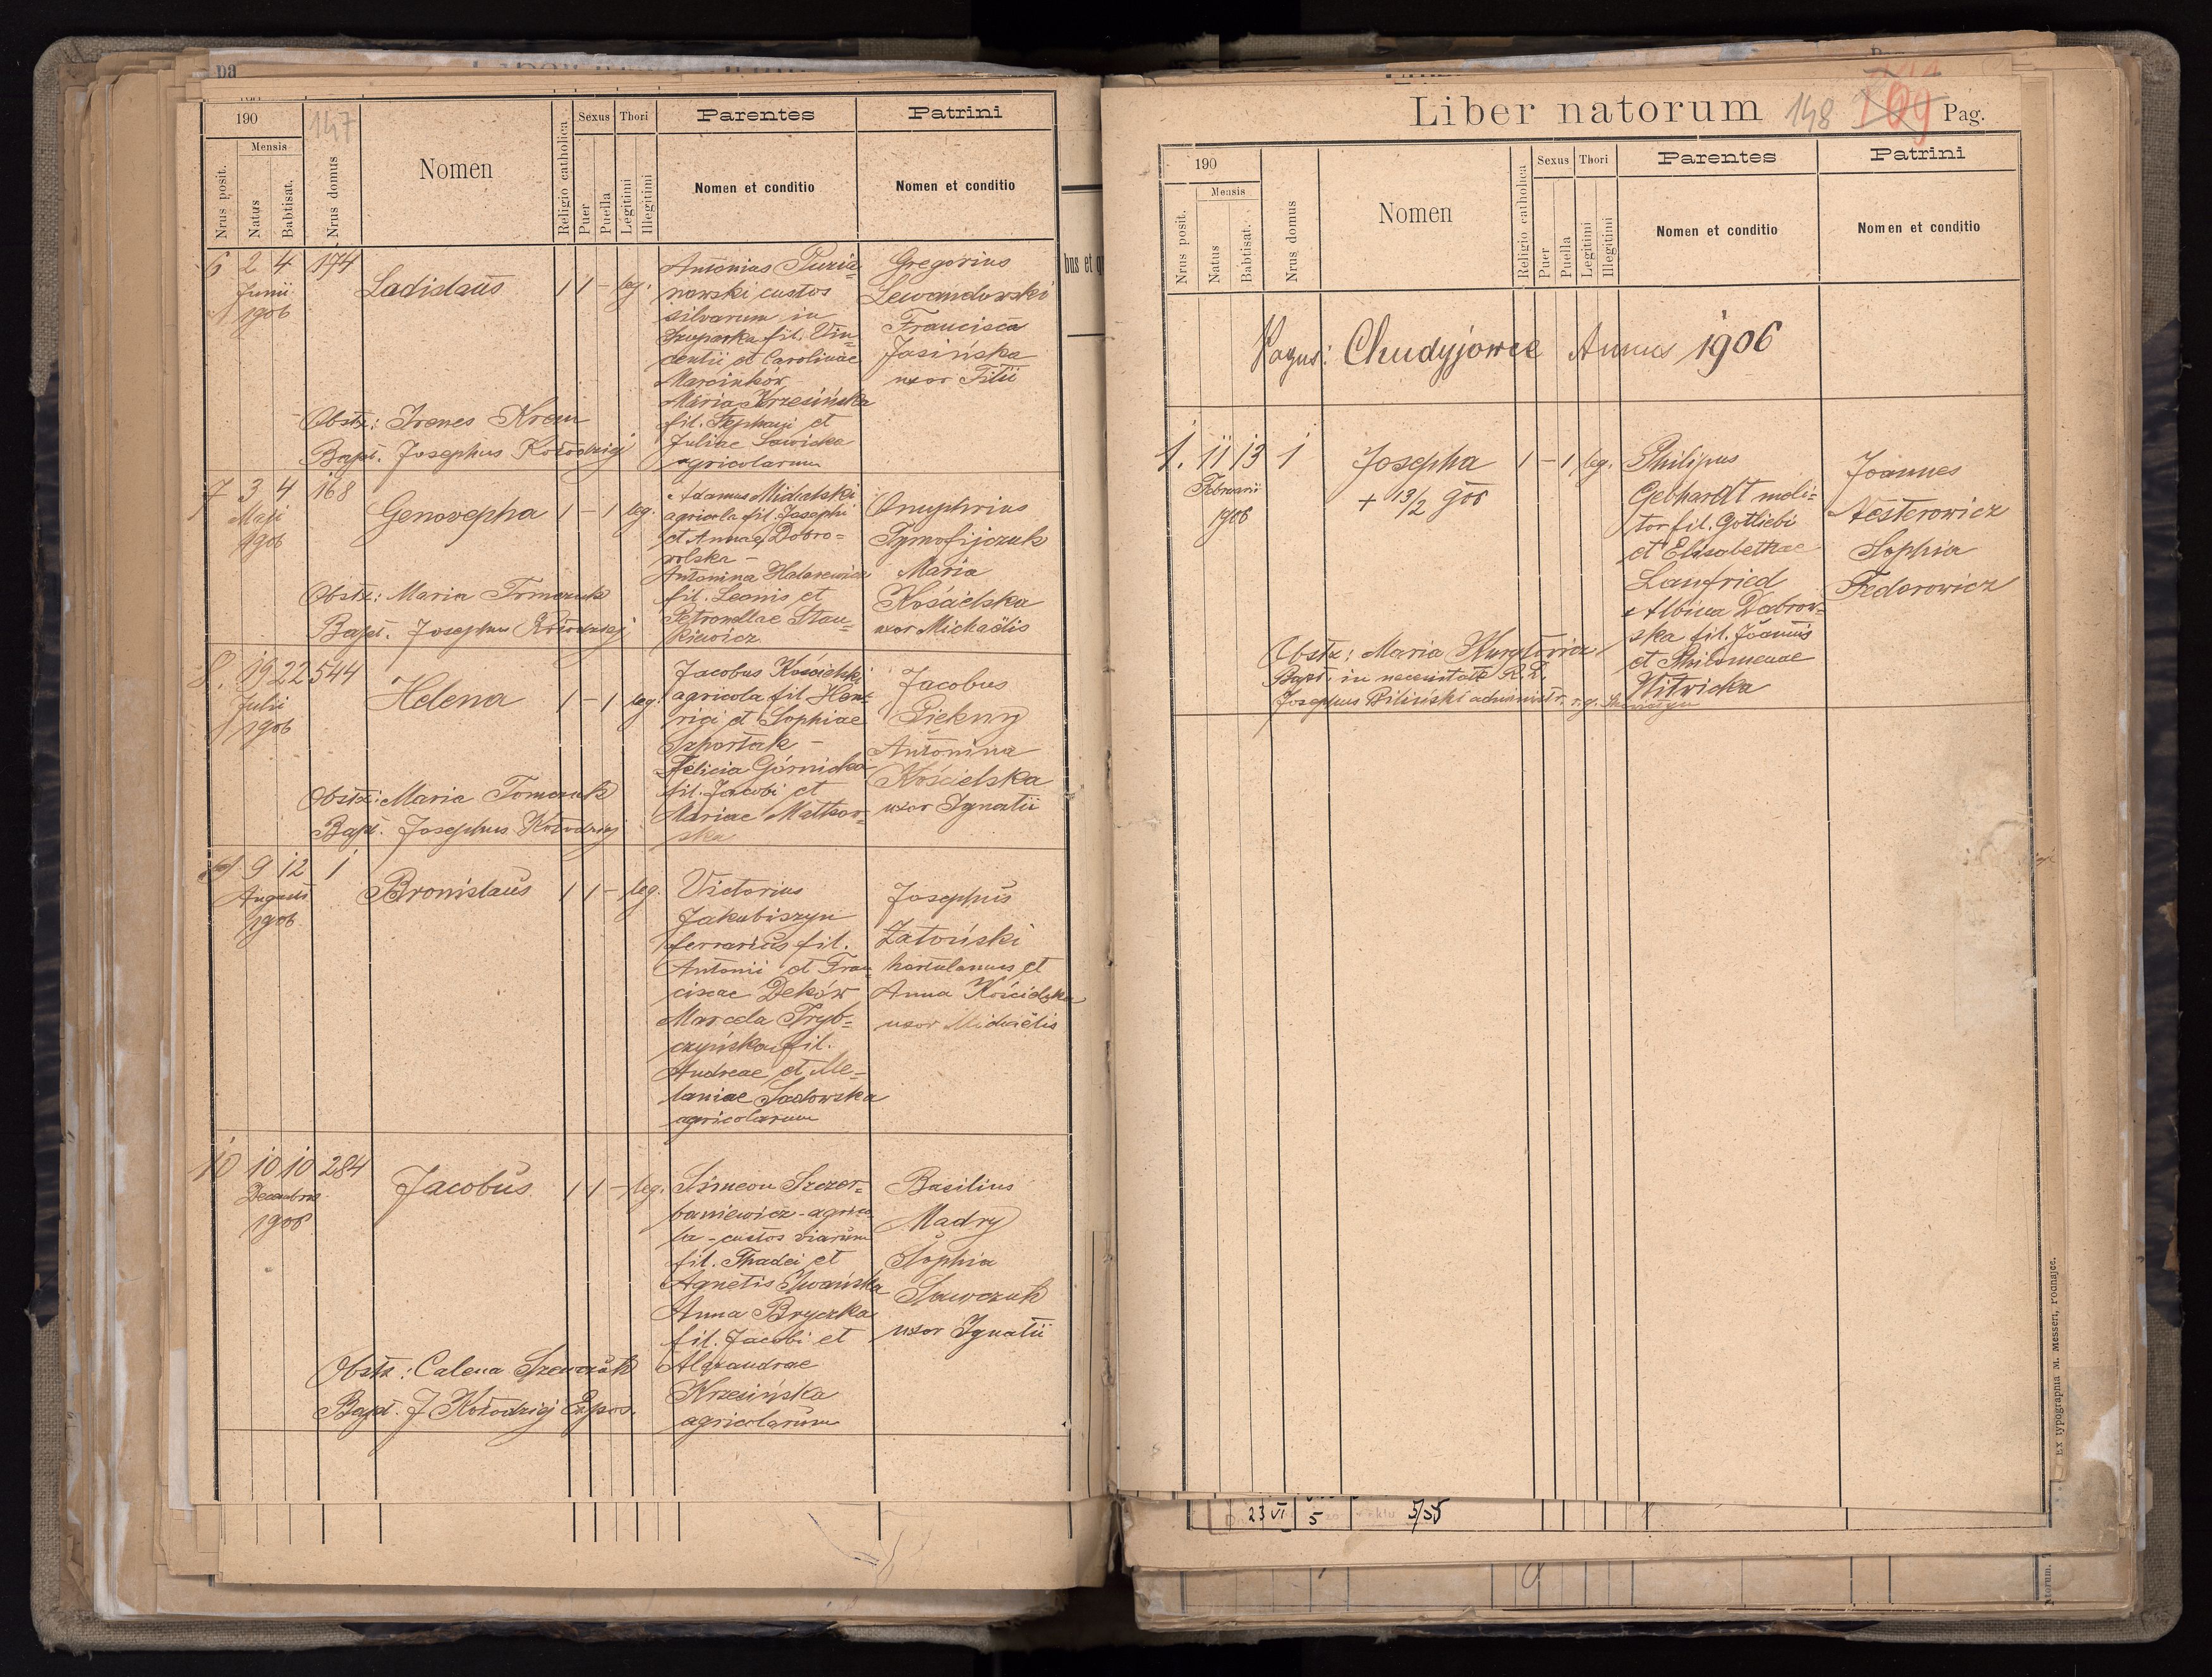 190
147
Mensis
Nrus posit.
Natus
Babtisat.
Nrus domus
Nomen
Religio catholica
Sexus
Puer
Puella
Thori
Legitimi
Illegitimi
Parentes
Nomen et conditio
Patrini
Nomen et conditio
6 2 4 174
Junii
1906
Ladislaus
1 1 - leg.
Antonius Puzia=
nowski custos
silvarum in
fil. Vin=
centii et Carolinae
Marcinków
Maria Krzesińska
fil. Stephani et
Juliae Sawicka
agricolarum
Gregorius
Lewandowski
Francisca
Jasińska
uxor Titii
Obstx: Irenes Krem
Bapt. Josephus Kołodziej
7 3 4 168
Maji
1906
Genovepha
1 - 1 leg.
Adamus Michalski
agricola fil. Josephi
et Annae Dobro=
wolska -
Antonina
fil. Leonis et
Petronellae Stan=
kiewicz
Onuphrius
Tymofijczuk
Maria
Kościelska
uxor Michaëlis
Obstx: Maria Tomczuk
Bapt. Josephus Kołodziej
8. 19 22 544
Julii
1906
Helena
1 - 1 leg.
Jacobus Kościelski
agricola fil. Hen=
rici et Sophiae
Szportak -
Felicia Górnicka
fil. Jacobi et
Mariae Malkow=
ska
Jacobus
Piekny
Antonina
Kościelska
uxor Ignatii
Obstx: Maria Tomczuk
Bapt. Josephus Kołodziej
9 9 12 1
Augusti
1906
Bronislaus
1 1 - leg.
Victorius
Jakubiszyn
ferrarius fil.
Antonii et Fran=
ciscae Deków
Marcela Tryb=
czyńska fil.
Andreae et Me=
laniae Sadowska
agricolarum
Josephus
Zatoński
hortulanus et
Anna Kościelska
uxor Michaëlis
10 10 10 284
Decembris
1906
Jacobus
1 1 - leg.
Simeon Szczer=
baniewicz - agrico
la - custos viarum
fil. Thadei et
Agnetis Iwańska
Anna Bryczka
fil. Jacobi et
Alexandrae
Krzesińska
agricolarum
Basilius
Madry
Sophia
Sawczuk
uxor Ignatii
Obstx: Calena Szewczuk
Bapt. J Kołodziej Expos.
Liber natorum 148 109 Pag.
190
Mensis
Nrus posit.
Natus
Babtisat.
Nrus domus
Nomen
Religio catholica
Sexus
Puer
Puella
Thori
Legitimi
Illegitimi
Parentes
Nomen et conditio
Patrini
Nomen et conditio
Pagus: Chudyjowce Annus 1906
1. 11 13 1
Februarii
1906
Josepha
+ 13/2 906
1 - 1 leg.
Philipus
Gebhardt moli=
tor fil. Gotliebi
et Elisabethae
Lanfried
Albina Dabrow=
ska fil. Joannis
et Philomenae
Witwicka
Joannes
Nesterowicz
Sophia
Fedorowicz
Obstx: Maria Kurylowicz
Bapt. in necessitate R. D.
Josephus Biliński administr. r. g.
23 VI 5 5/55
Ex typographia M. Messeri, Podhajce.